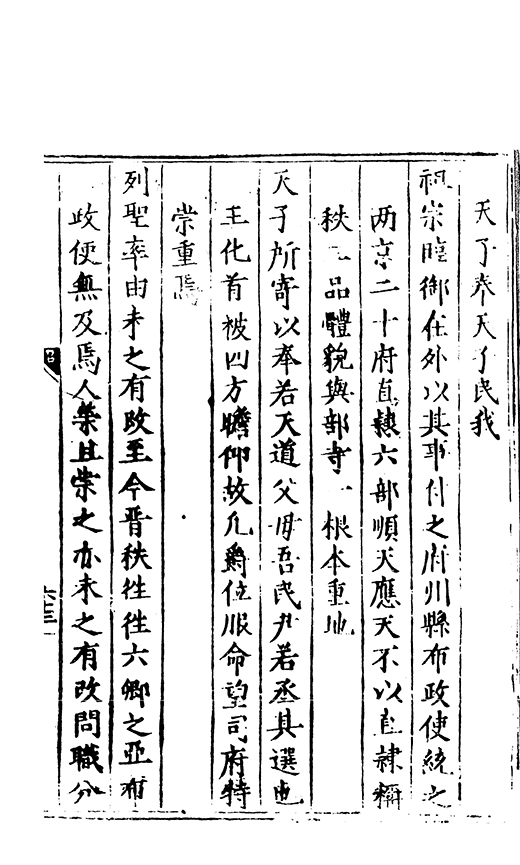 天子奉天子民我
祖宗臨御在外以其事付之府州縣布政使統之
两京二十府直隸六部順天應天不以直隸稱
秩三品體貌與部寺一根本重地
天子所寄以奉若天道父母吾民尹若丞其選也
王化首被四方瞻仰故凡爵位服命望司府特
崇重焉
列聖率由未之有改至今晋秩徃徃六卿之亞布
政使無及焉人榮且崇之亦未之有改問職分